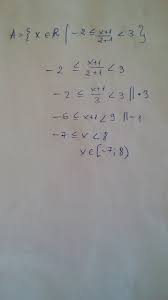 A = { x ∈ R | -2 ≤ (x+1)/(2+1) < 3 }
-2 ≤ (x+1)/(2+1) < 3
-2 ≤ (x+1)/3 < 3 || ·3
-6 ≤ x+1 < 9 || -1
-7 ≤ x < 8
x ∈ [-7; 8)